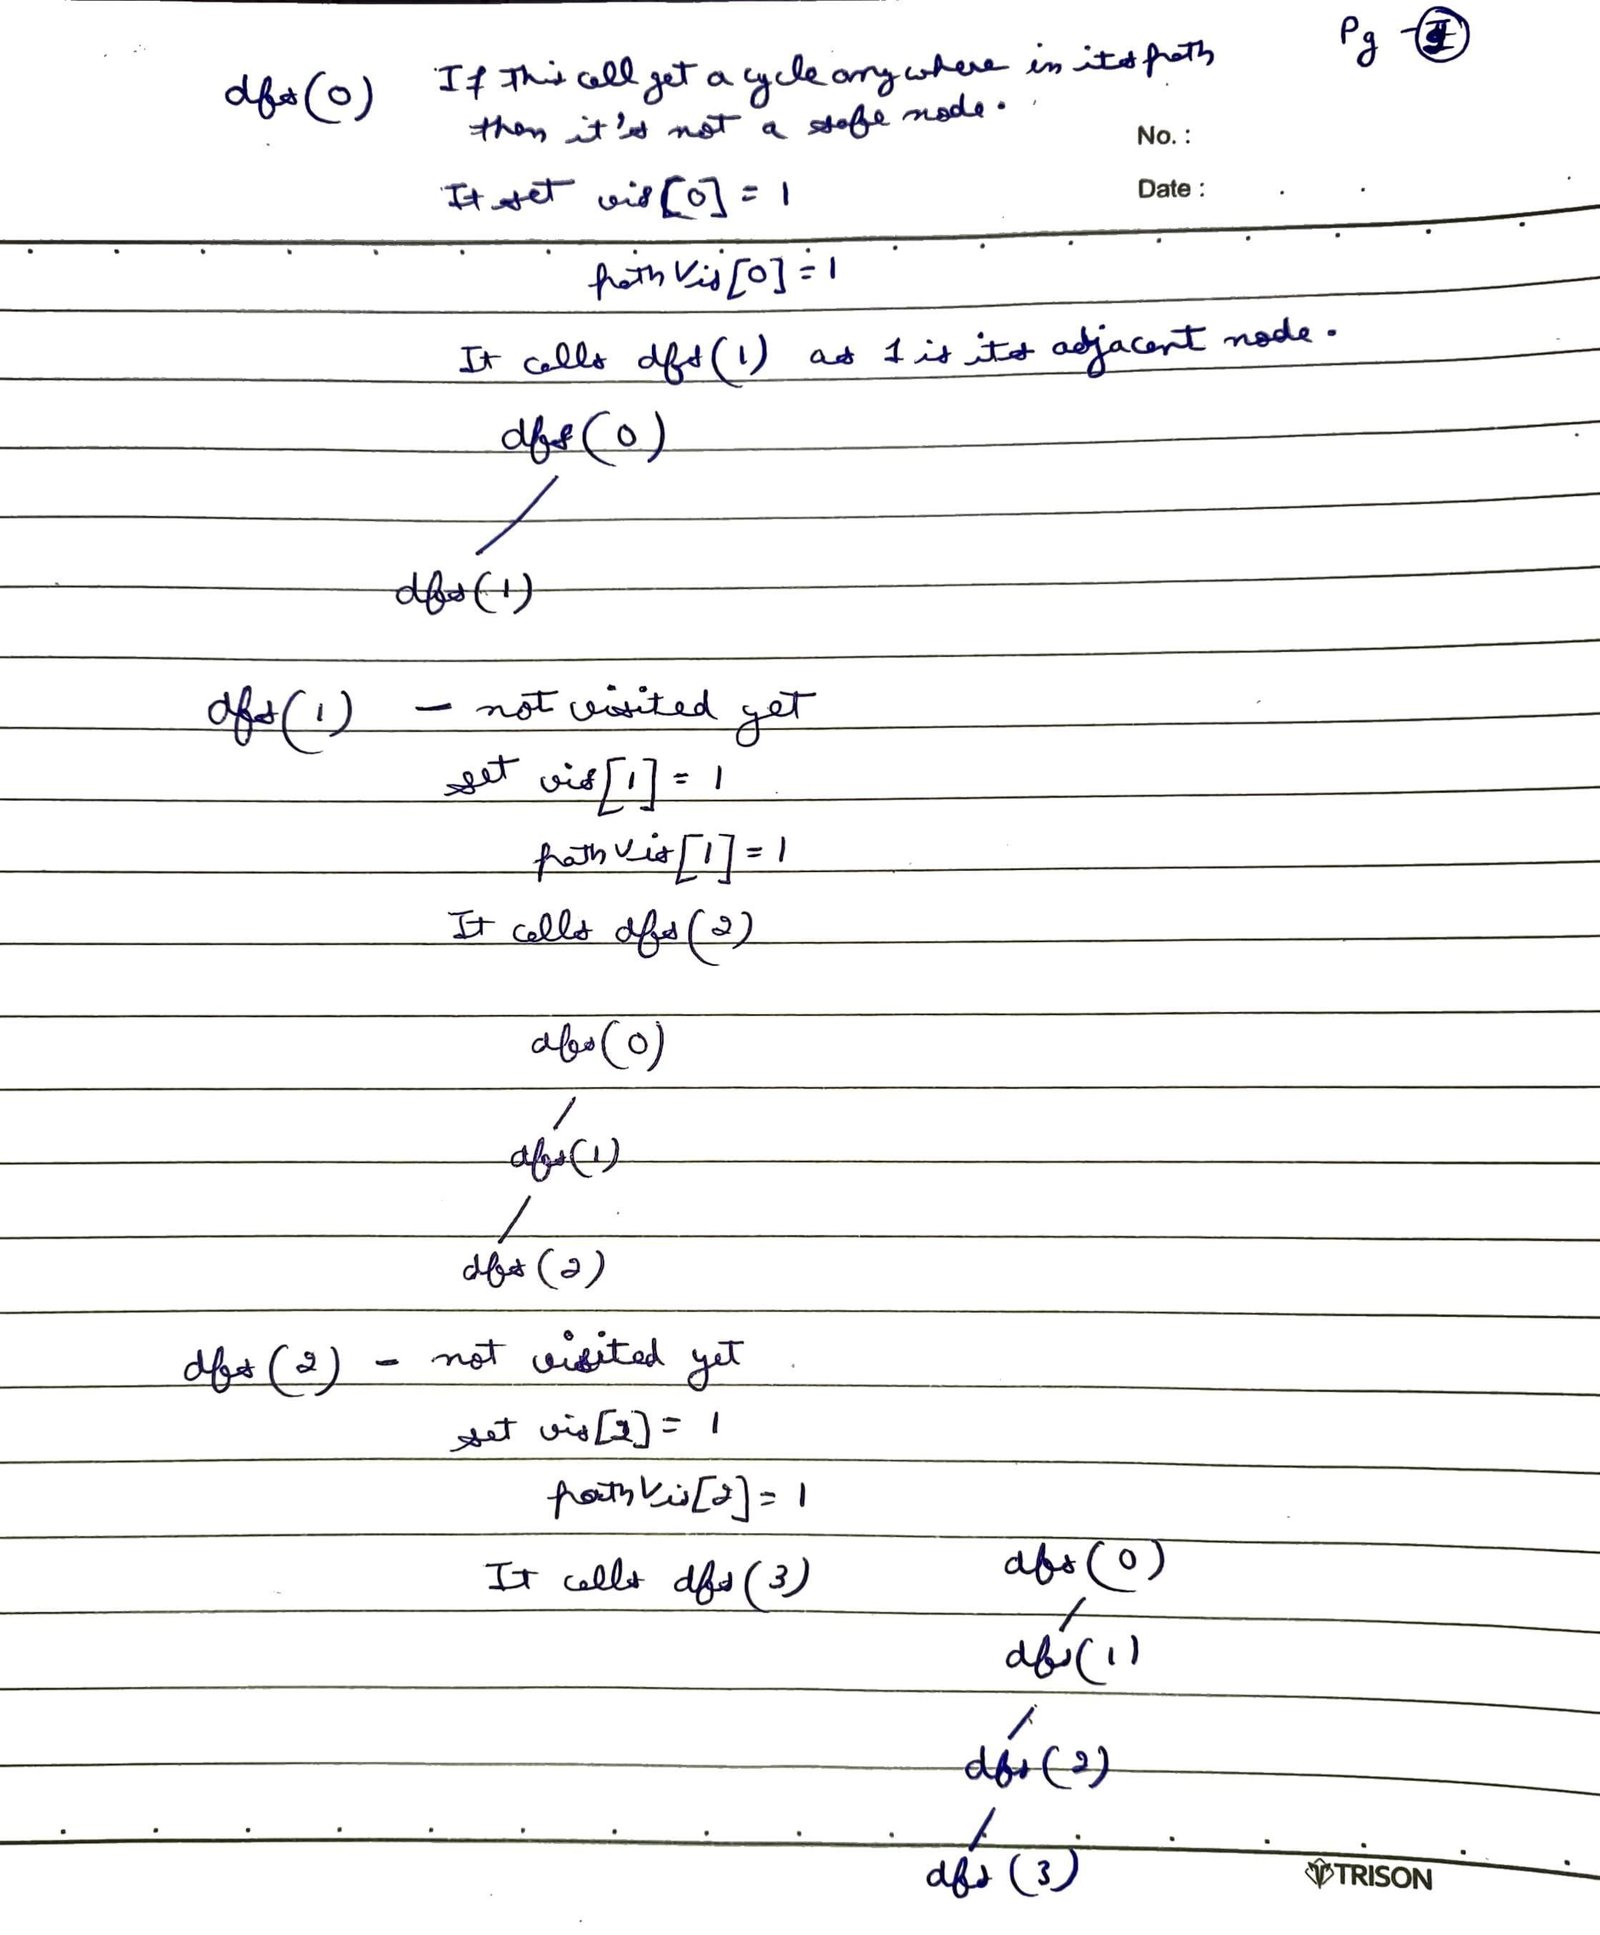 Pg -
dfs(0) If this call get a cycle any where in its path
then it's not a safe node.
No. :
It set vis[0] = 1
Date :
pathVis[0] = 1
It calls dfs(1) as 1 is its adjacent node.
dfs(0)
dfs(1)
dfs(1) - not visited yet
set vis[1] = 1
pathVis[1] = 1
It calls dfs(2)
dfs(0)
dfs(1)
dfs(2)
dfs(2) - not visited yet
set vis[2] = 1
pathVis[2] = 1
It calls dfs(3)
dfs(0)
dfs(1)
dfs(2)
dfs(3)
TRISON